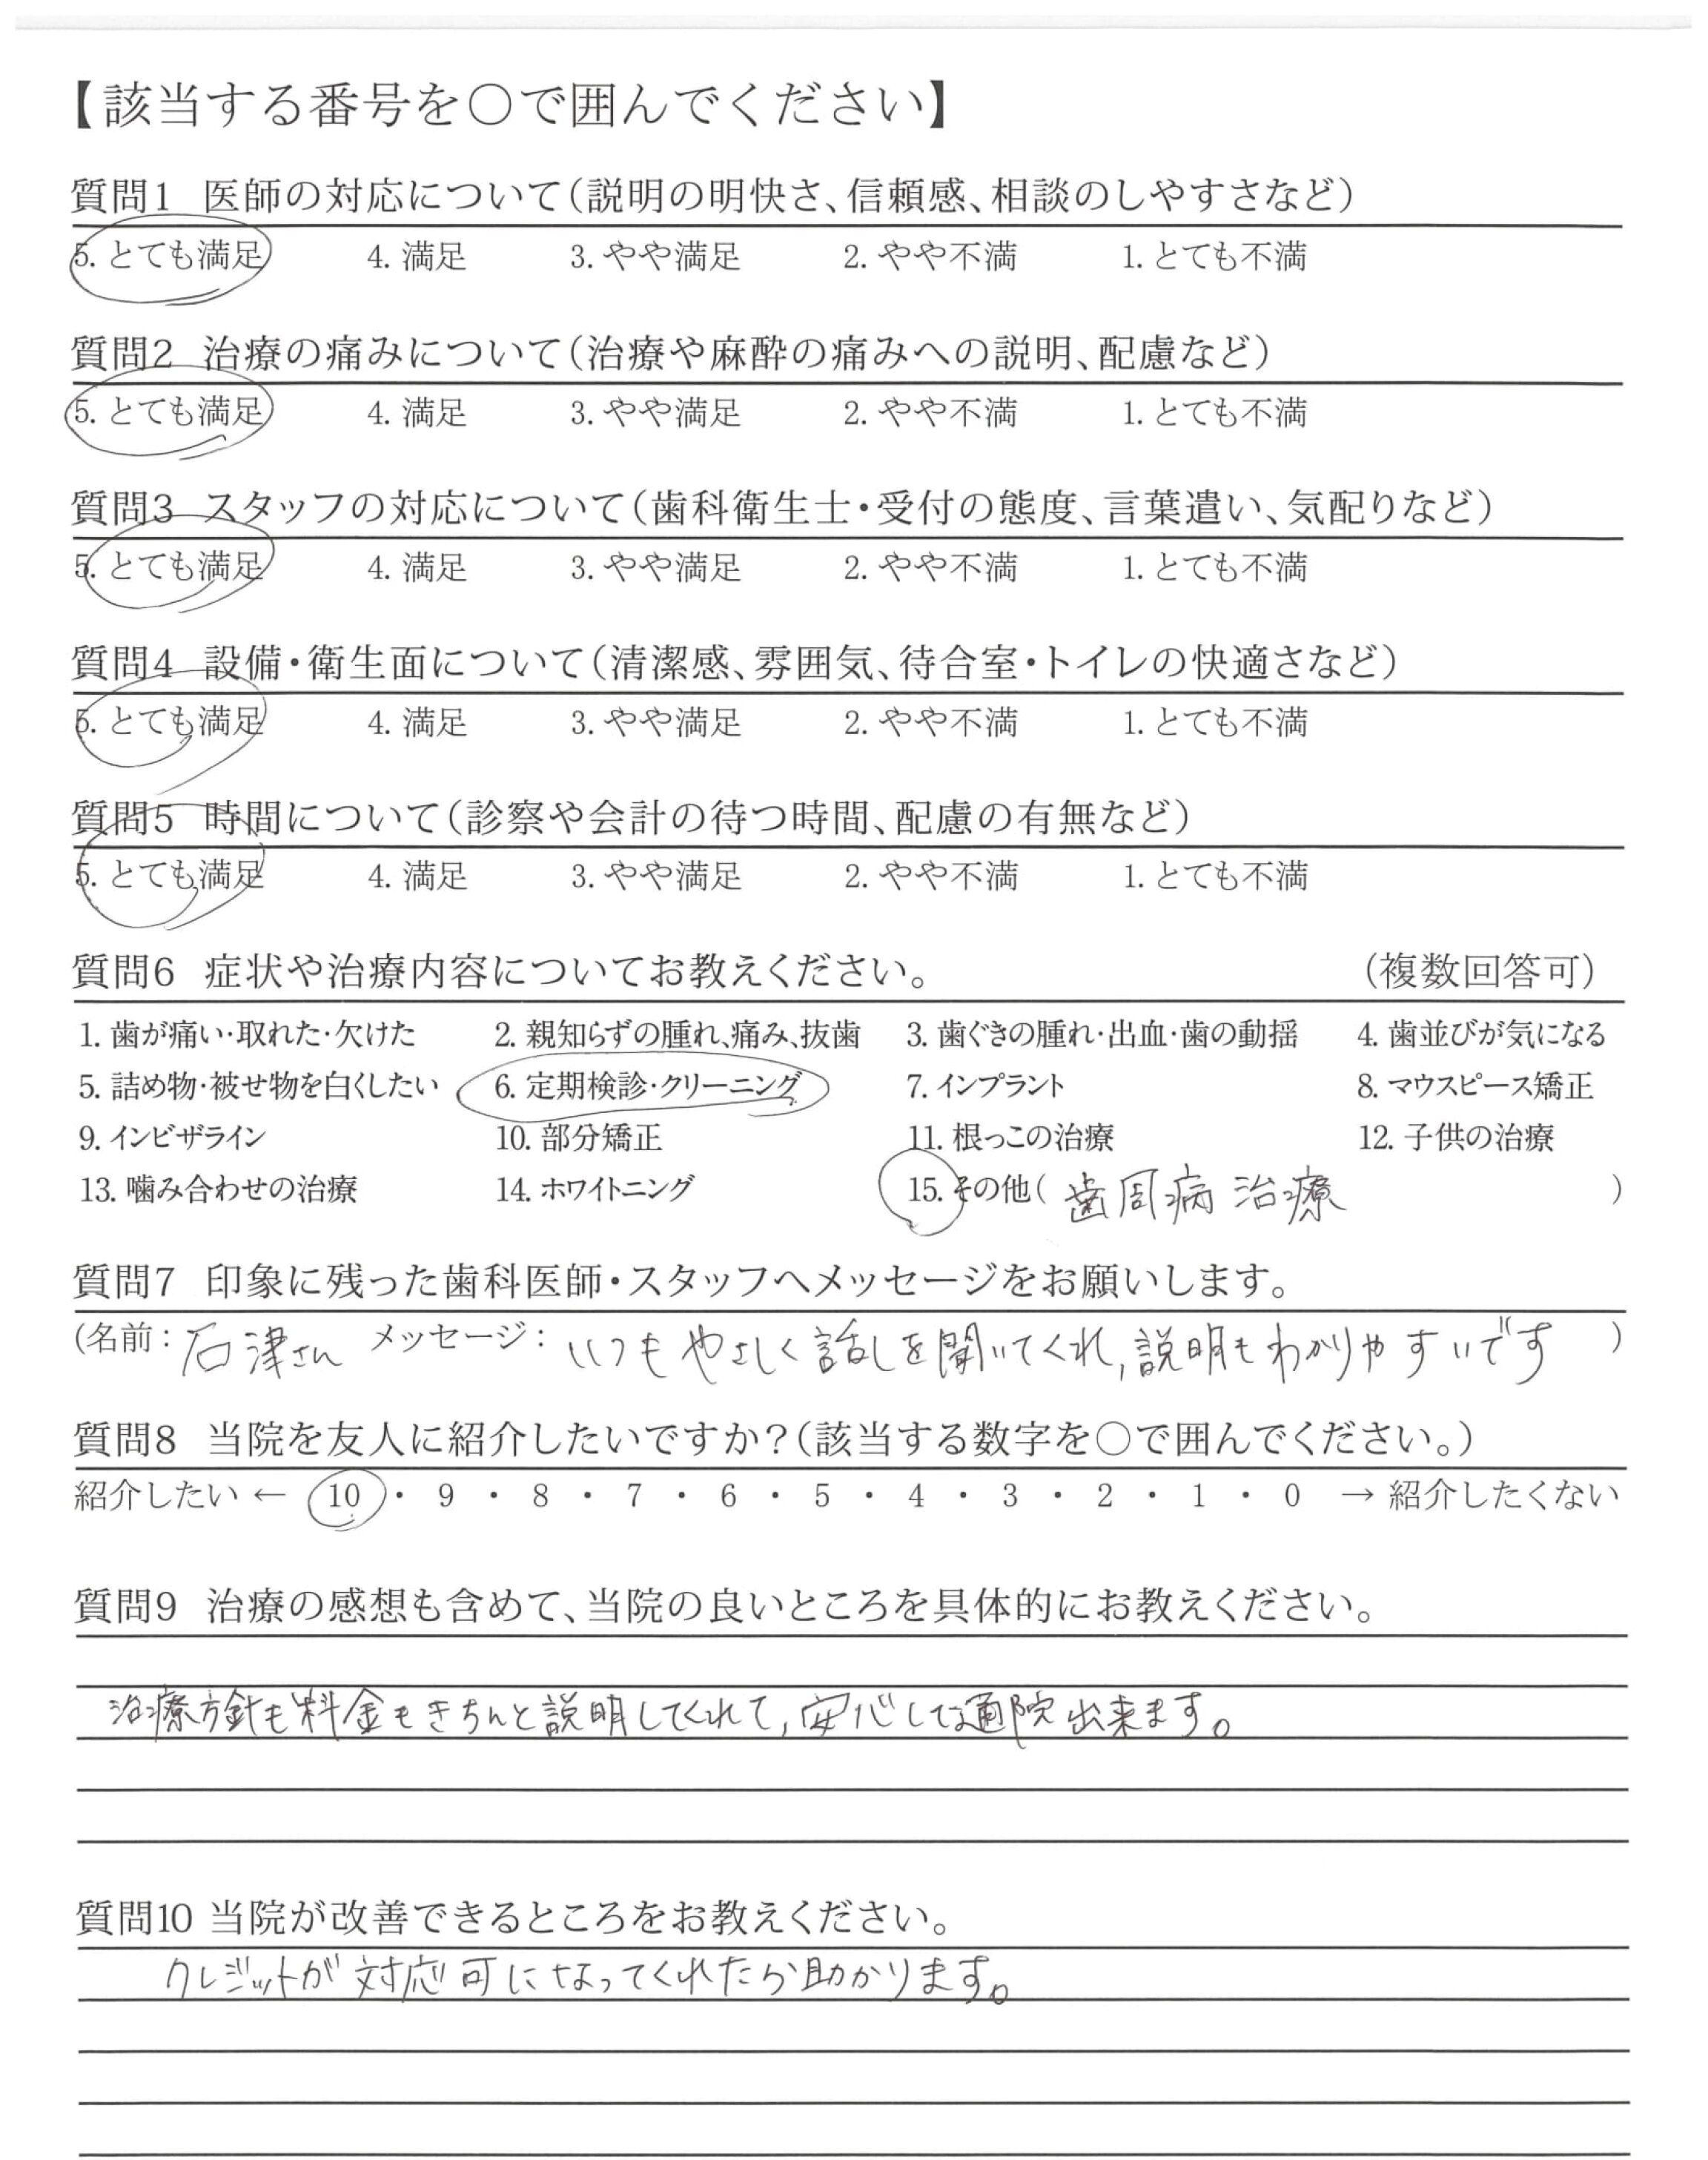 【該当する番号を○で囲んでください】
質問1 医師の対応について(説明の明快さ、信頼感、相談のしやすさなど)
5. とても満足 4. 満足 3. やや満足 2. やや不満 1. とても不満
質問2 治療の痛みについて(治療や麻酔の痛みへの説明、配慮など)
5. とても満足 4. 満足 3. やや満足 2. やや不満 1. とても不満
質問3 スタッフの対応について(歯科衛生士・受付の態度、言葉遣い、気配りなど)
5. とても満足 4. 満足 3. やや満足 2. やや不満 1. とても不満
質問4 設備・衛生面について(清潔感、雰囲気、待合室・トイレの快適さなど)
5. とても満足 4. 満足 3. やや満足 2. やや不満 1. とても不満
質問5 時間について(診察や会計の待つ時間、配慮の有無など)
5. とても満足 4. 満足 3. やや満足 2. やや不満 1. とても不満
質問6 症状や治療内容についてお教えください。 (複数回答可)
1. 歯が痛い・取れた・欠けた 2. 親知らずの腫れ、痛み、抜歯 3. 歯ぐきの腫れ・出血・歯の動揺 4. 歯並びが気になる
5. 詰め物・被せ物を白くしたい 6. 定期検診・クリーニング 7. インプラント 8. マウスピース矯正
9. インビザライン 10. 部分矯正 11. 根っこの治療 12. 子供の治療
13. 噛み合わせの治療 14. ホワイトニング 15. その他( 歯周病治療 )
質問7 印象に残った歯科医師・スタッフへメッセージをお願いします。
(名前: 石津さん メッセージ: いつもやさしく話しを聞いてくれ,説明もわかりやすいです )
質問8 当院を友人に紹介したいですか?(該当する数字を○で囲んでください。)
紹介したい ← 10 ・ 9 ・ 8 ・ 7 ・ 6 ・ 5 ・ 4 ・ 3 ・ 2 ・ 1 ・ 0 → 紹介したくない
質問9 治療の感想も含めて、当院の良いところを具体的にお教えください。
治療方針も料金もきちんと説明してくれて,安心して通院出来ます。
質問10 当院が改善できるところをお教えください。
クレジットが対応可になってくれたら助かります。